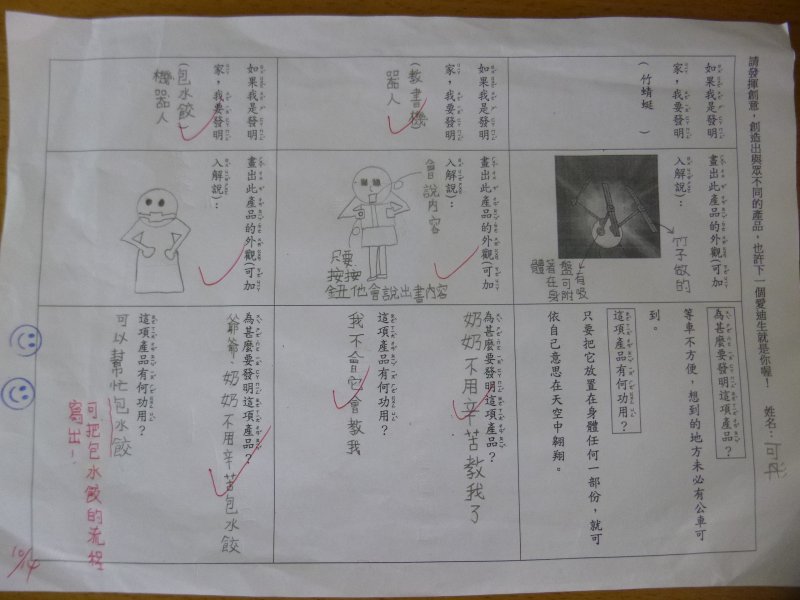 請發揮創意，創造出與眾不同的產品，也許下一個愛迪生就是你喔！
姓名：可彤
如果我是發明
家，我要發明
（竹蜻蜓）
畫出此產品的外觀(可加
入解說)：
竹子做的
有吸
盤可附
著在身
體
為甚麼要發明這項產品？
等車不方便，想到的地方未必有公車可
到。
這項產品有何功用？
只要把它放置在身體任何一部份，就可
依自己意思在天空中翱翔。
如果我是發明
家，我要發明
(教書機
器人
畫出此產品的外觀(可加
入解說)：
會說內容
只要
按按
鈕他會說出書內容
為甚麼要發明這項產品？
奶奶不用辛苦教我了
這項產品有何功用？
我不會它會教我
如果我是發明
家，我要發明
(包水餃
機器人
畫出此產品的外觀(可加
入解說)：
為甚麼要發明這項產品？
爺爺、奶奶不用辛苦包水餃
這項產品有何功用？
可以幫忙包水餃
可把包水餃的流程
寫出！
10/14